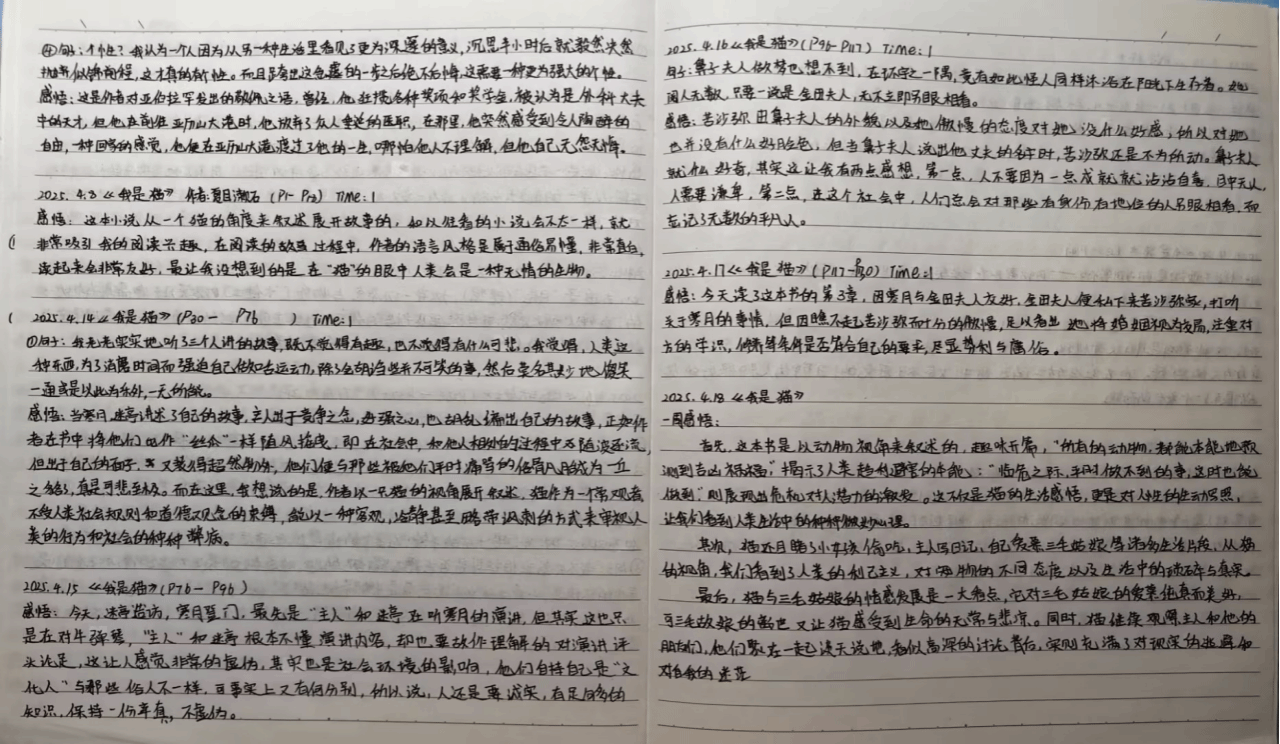 ④句子:个性?我认为一个人因为从另一种生活里看见了更为深邃的意义,沉思半小时后就毅然决然
抛弃似锦前程,这才真的有个性。而且迈出这危墨的一步之后绝不后悔,这需要一种更为强大的个性。
感悟:这是作者对亚伯拉罕发出的敬佩之语,曾经,他狂揽各种奖项和奖学金,被认为是外科大夫
中的天才,但他在前往亚历山大港时,他放弃了众人垂涎的医职,在那里,他突然感受到令人陶醉的
自由,一种回家的感觉,他便在亚历山大港度过了他的一生,哪怕他人不理解,但他自己无怨无悔。
2025.4.8 《我是猫》 作者:夏目漱石 (P1-P20) Time:1
感悟:这本小说,从一个猫的角度来叙述展开故事的,和以往看的小说会不太一样,就
非常吸引我的阅读兴趣,在阅读的故事过程中,作者的语言风格是属于通俗易懂,非常直白,
读起来会非常友好,最让我没想到的是在“猫”的眼中人类会是一种无情的生物。
2025.4.14《我是猫》(P20- P76 ) Time:1
①句子:我老老实实地听了三个人讲的故事,既不觉得有趣,也不觉得有什么可悲。我觉得,人类这
种东西,为了消磨时间而强迫自己做嘴舌运动,除了会胡诌些并不可笑的事,然后莫名其妙地傻笑
一通或是以此为乐外,一无所能。
感悟:当寒月、迷亭讲述了自己的故事,主人出于竞争之念,好强之心,也胡乱编出自己的故事,正如作
者在书中将他们比作“丝瓜”一样随风摇曳,即在社会中,和他人相处的过程中及随波逐流,
但出于自己的面子,又装得超然物外,他们便与那些被他们平时痛骂的俗骨凡胎成为一丘
之貉了,真是可悲至极。而在这里,我想说的是,作者以一只猫的视角展开叙述,猫作为一个旁观者
不受人类社会规则和道德观念的束缚,能以一种客观,冷静甚至略带讽刺的方式来审视人
类的行为和社会的种种弊病。
2025.4.15 《我是猫》(P76- P96)
感悟:今天,迷亭造访,寒月登门,最先是“主人”和迷亭在听寒月的演讲,但其实这也只
是在对牛弹琴,“主人”和迷亭根本不懂演讲内容,却也要故作理解的对演讲评
头论足,这让人感觉非常的虚伪,其实也是社会环境的影响,他们自持自己是“文
化人”与那些俗人不一样,可事实上又有何分别,所以说,人还是要诚实,有足够多的
知识,保持一份率真,不虚伪。
2025.4.16《我是猫》(P96-P117) Time:1
句子:鼻子夫人做梦也想不到,在环宇之一隅,竟有如此怪人同样沐浴在阳光下生存着。她
阅人无数,只要一说是金田夫人,无不立即另眼相看。
感悟:苦沙弥因鼻子夫人的外貌以及她傲慢的态度对她没什么好感,所以对她
也并没有什么好脸色,但当鼻子夫人说出他丈夫的名字时,苦沙弥还是不为所动。鼻子夫人
就什么好奇,其实这让我有两点感想,第一点,人不要因为一点成就就沾沾自喜,目中无人,
人需要谦卑,第二点,在这个社会中,人们总会对那些有身份有地位的人另眼相看,而
忘记了无数的平凡人。
2025.4.17《我是猫》(P117-130) Time:1
感悟:今天读了这本书的第3章,因寒月与金田夫人友好,金田夫人便私下来苦沙弥家,打听
关于寒月的事情,但因瞧不起苦沙弥而十分的傲慢,足以看出她将婚姻视为交易,注重对
方的学识, 等条件是否符合自己的要求,尽显势利与庸俗。
2025.4.18《我是猫》
一周感悟:
首先,这本书是以动物视角来叙述的,趣味开篇,“所有的动物,都能本能地预
测到吉凶祸福”揭示了人类趋利避害的本能;“临危之际,平时做不到的事,这时也能
做到”则展现出危机对人潜力的激发。这不仅是猫的生活感悟,更是对人性的生动写照,
让我们看到人类生活中的种种微妙心理。
其次,猫还目睹了小女孩偷吃,主人写日记,自己爱慕三毛姑娘等诸多生活片段,从猫
的视角,我们看到了人类的利己主义,对宠物的不同态度以及生活中的琐碎与真实。
最后,猫与三毛姑娘的情感发展是一大看点,它对三毛姑娘的爱慕纯真而美好,
可三毛姑娘的离世又让猫感受到生命的无常与悲凉。同时,猫继续观察主人和他的
朋友们,他们聚在一起谈天说地,看似高深的讨论背后,实则充满了对现实的逃避和
对自我的迷茫